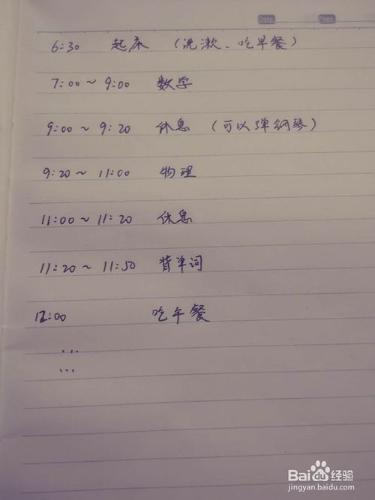 6:30 起床 (洗漱、吃早餐)
7:00~9:00 数学
9:00~9:20 休息 (可以弹钢琴)
9:20~11:00 物理
11:00~11:20 休息
11:20~11:50 背单词
12:00 吃午餐
...
...
Baidu 经验
jingyan.baidu.com